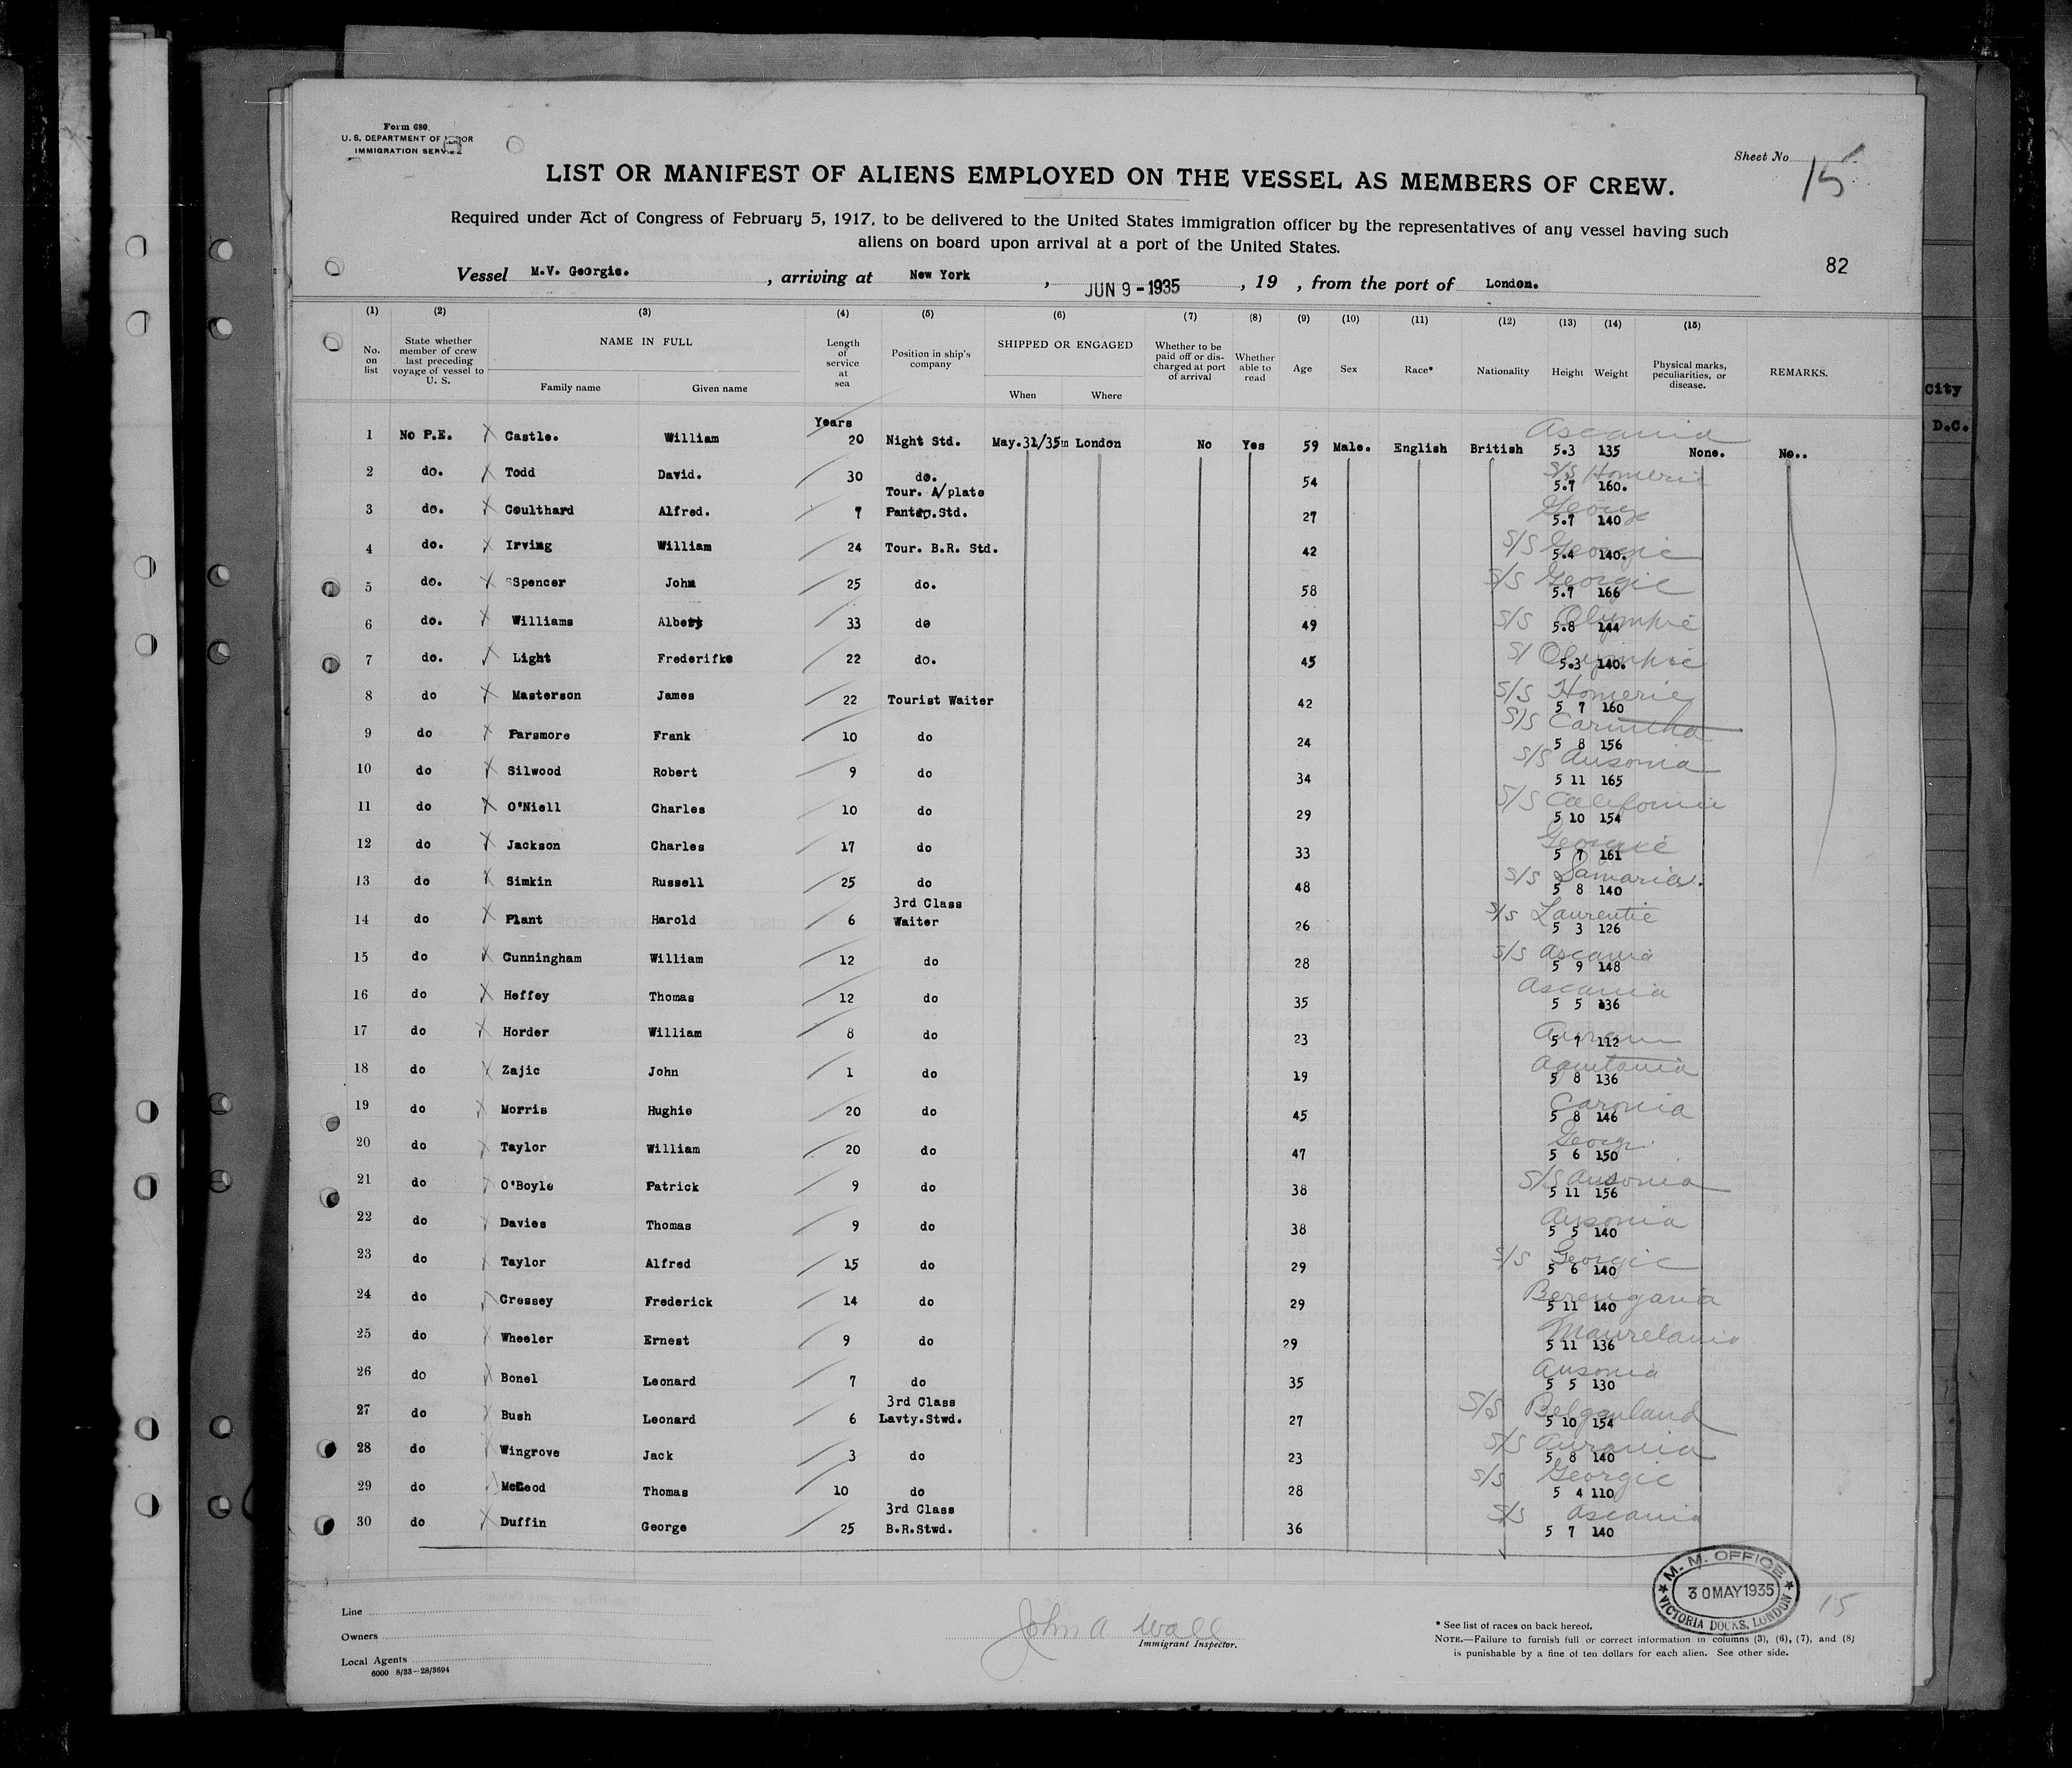 Form 680.
U. S. DEPARTMENT OF
IMMIGRATION SERVICE
Sheet No. 15
LIST OR MANIFEST OF ALIENS EMPLOYED ON THE VESSEL AS MEMBERS OF CREW.
Required under Act of Congress of February 5, 1917, to be delivered to the United States immigration officer by the representatives of any vessel having such
aliens on board upon arrival at a port of the United States.
82
Vessel M.V. Georgic. , arriving at New York , JUN 9 - 1935 , 19 , from the port of London.
(1) (2) (3) (4) (5) (6) (7) (8) (9) (10) (11) (12) (13) (14) (15)
No. on list
State whether member of crew last preceding voyage of vessel to U. S.
NAME IN FULL
Family name Given name
Length of service at sea
Position in ship's company
SHIPPED OR ENGAGED
When Where
Whether to be paid off or discharged at port of arrival
Whether able to read
Age Sex Race* Nationality Height Weight
Physical marks, peculiarities, or disease.
REMARKS.
Years
1 No P.E. Castle. William 20 Night Std. May.31/35 London No Yes 59 Male. English British Ascania 5.3 135 None. No..
2 do. Todd David. 30 do. 54 S/S Homeric 5.7 160.
3 do. Coulthard Alfred. 7 Tour. A/plate Pantr.Std. 27 Georgic 5.7 140
4 do. Irving William 24 Tour. B.R. Std. 42 S/S Georgic 5.4 140.
5 do. Spencer John 25 do. 58 S/S Georgic 5.7 166
6 do. Williams Albert 33 do 49 S/S Olympic 5.8 144
7 do. Light Frederifke 22 do. 45 S/ Olympic 5.3 140.
8 do Masterson James 22 Tourist Waiter 42 S/S Homeric 5 7 160
9 do Parsmore Frank 10 do 24 S/S Carinthia 5 8 156
10 do Silwood Robert 9 do 34 S/S Ausonia 5 11 165
11 do O'Niell Charles 10 do 29 S/S California 5 10 154
12 do Jackson Charles 17 do 33 Georgic 5 7 161
13 do Simkin Russell 25 do 48 S/S Samaria. 5 8 140
14 do Plant Harold 6 3rd Class Waiter 26 S/S Laurentic 5 3 126
15 do Cunningham William 12 do 28 S/S Ascania 5 9 148
16 do Heffey Thomas 12 do 35 Ascania 5 5 136
17 do Horder William 8 do 23 5 7 112
18 do Zajic John 1 do 19 Aquitania 5 8 136
19 do Morris Hughie 20 do 45 Caronia 5 8 146
20 do Taylor William 20 do 47 Georgic 5 6 150
21 do O'Boyle Patrick 9 do 38 S/S Ausonia 5 11 156
22 do Davies Thomas 9 do 38 Ausonia 5 5 140
23 do Taylor Alfred 15 do 29 S/S Georgic 5 6 140
24 do Cressey Frederick 14 do 29 Berengaria 5 11 140
25 do Wheeler Ernest 9 do 29 Mauretania 5 11 136
26 do Bonel Leonard 7 do 35 Ausonia 5 5 130
27 do Bush Leonard 6 3rd Class Lavty.Stwd. 27 S/S Belgenland 5 10 154
28 do Wingrove Jack 3 do 23 S/S Aurania 5 8 140
29 do McLeod Thomas 10 do 28 S/S Georgic 5 4 110
30 do Duffin George 25 3rd Class B.R.Stwd. 36 S/S Ascania 5 7 140
M. M. OFFICE
30 MAY 1935
VICTORIA DOCKS, LONDON
15
Line
Owners
Local Agents
6000 8/33—28/3694
John A Wall
Immigrant Inspector.
* See list of races on back hereof.
NOTE.—Failure to furnish full or correct information in columns (3), (6), (7), and (8)
is punishable by a fine of ten dollars for each alien. See other side.
City
D.C.